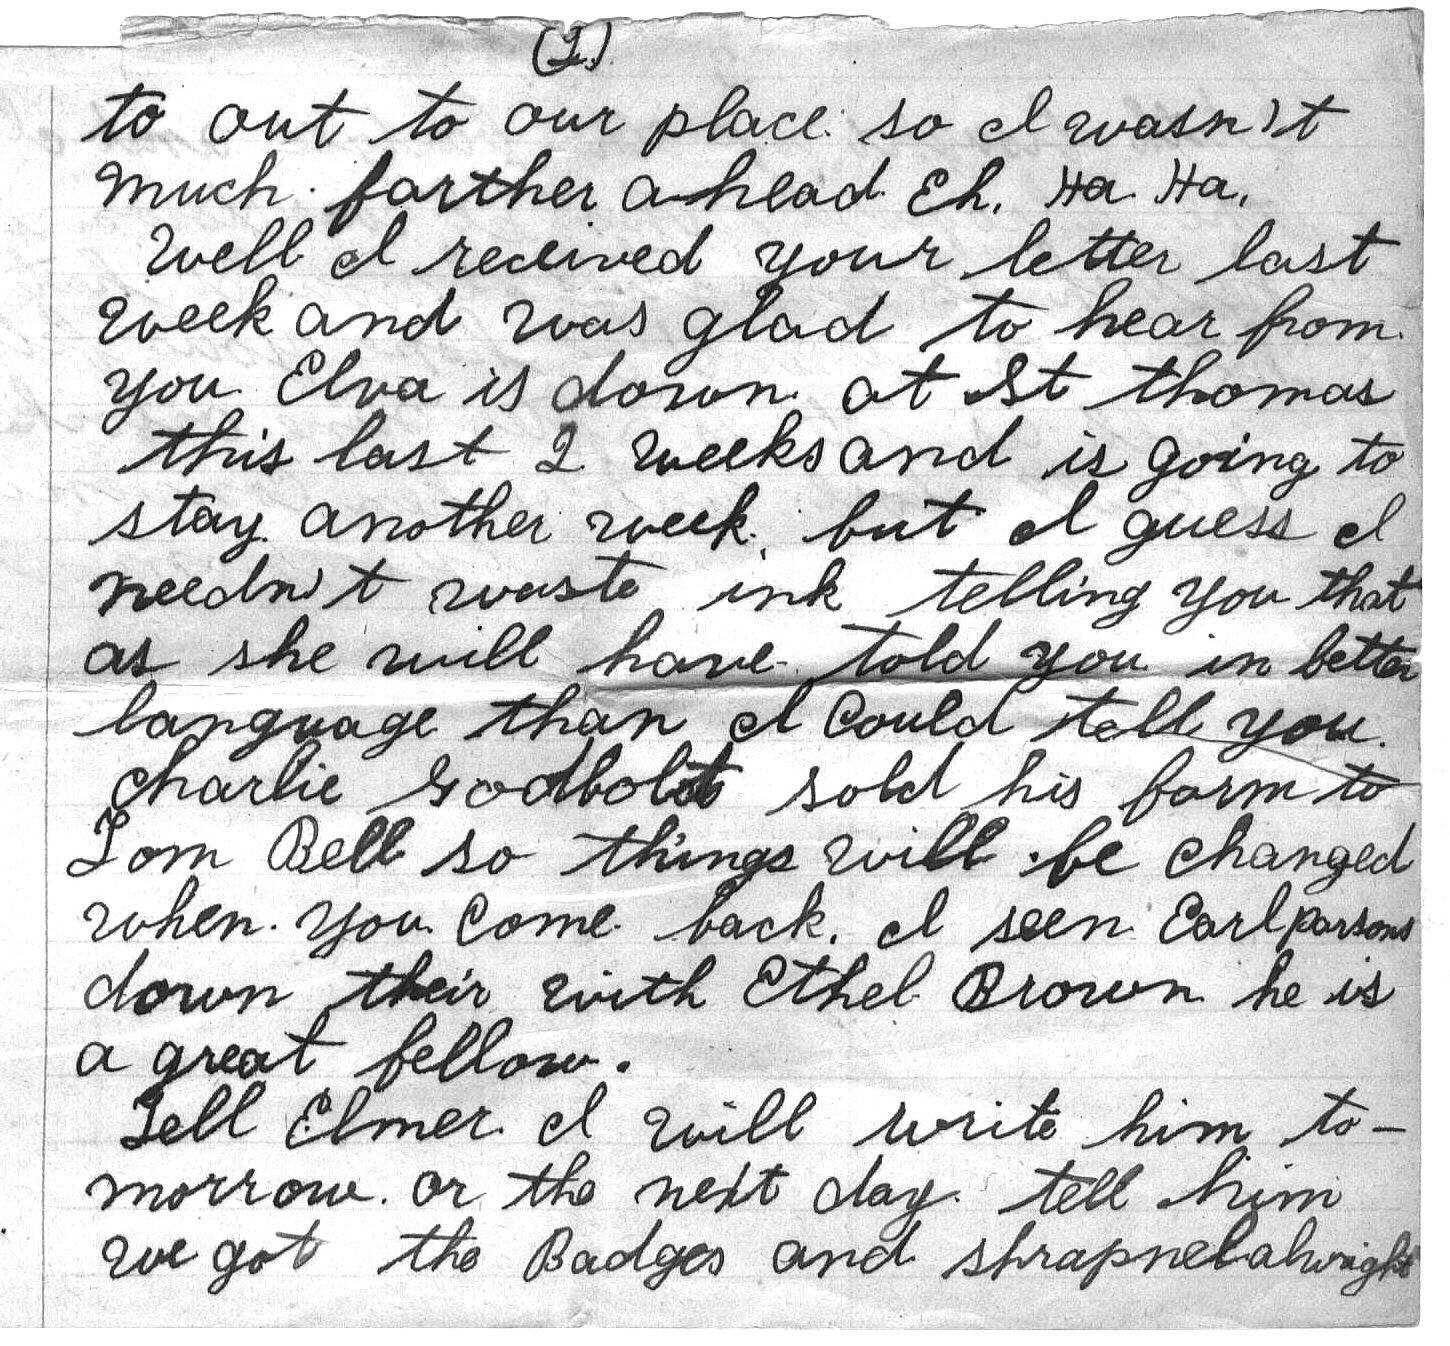 (2.)
to out to our place so I wasn't
much farther a head Eh. Ha Ha.
Well I received your letter last
week and was glad to hear from
you Elva is down at St thomas
this last 2 weeks and is going to
stay another week, but I guess I
needn't waste ink telling you that
as she will have told you in better
language than I could tell you.
Charlie Godbolt sold his farm to
Tom Bell so things will be changed
when you come back. I seen Earl parsons
down their with Ethel Brown he is
a great fellow.
Tell Elmer I will write him to-
morrow or the next day tell him
we got the Badges and shrapnel alwright